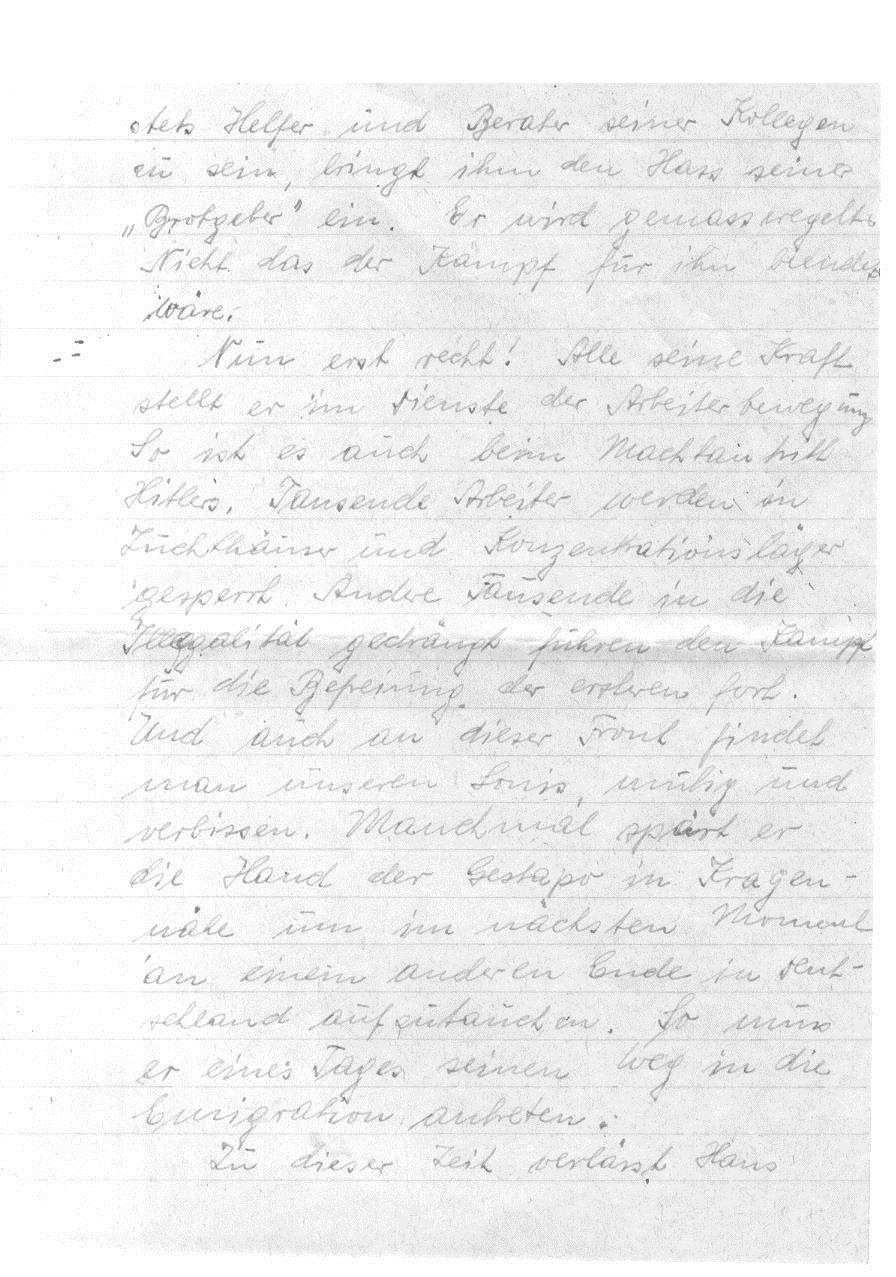 stets Helfer und Berater seiner Kollegen
zu sein, bringt ihm den Hass seiner
„Brotgeber" ein. Er wird gemassregelt.
Nicht das der Kampf für ihn beendet
wäre.
Nun erst recht! Alle seine Kraft
stellt er im Dienste der Arbeiterbewegung
So ist es auch beim Machtantritt
Hitlers. Tausende Arbeiter werden in
Zuchthäuser und Konzentrationsläger
gesperrt. Andere Tausende in die
Illegalität gedrängt führen den Kampf
für die Befreiung der ersteren fort.
Und auch an dieser Front findet
man unseren Louis, mutig und
verbissen. Manchmal spürt er
die Hand der Gestapo in Kragen-
nähe um im nächsten Moment
an einem anderen Ende in Deut-
schland aufzutauchen. So muss
er eines Tages seinen Weg in die
Emigration antreten.
Zu dieser Zeit verlässt Hans